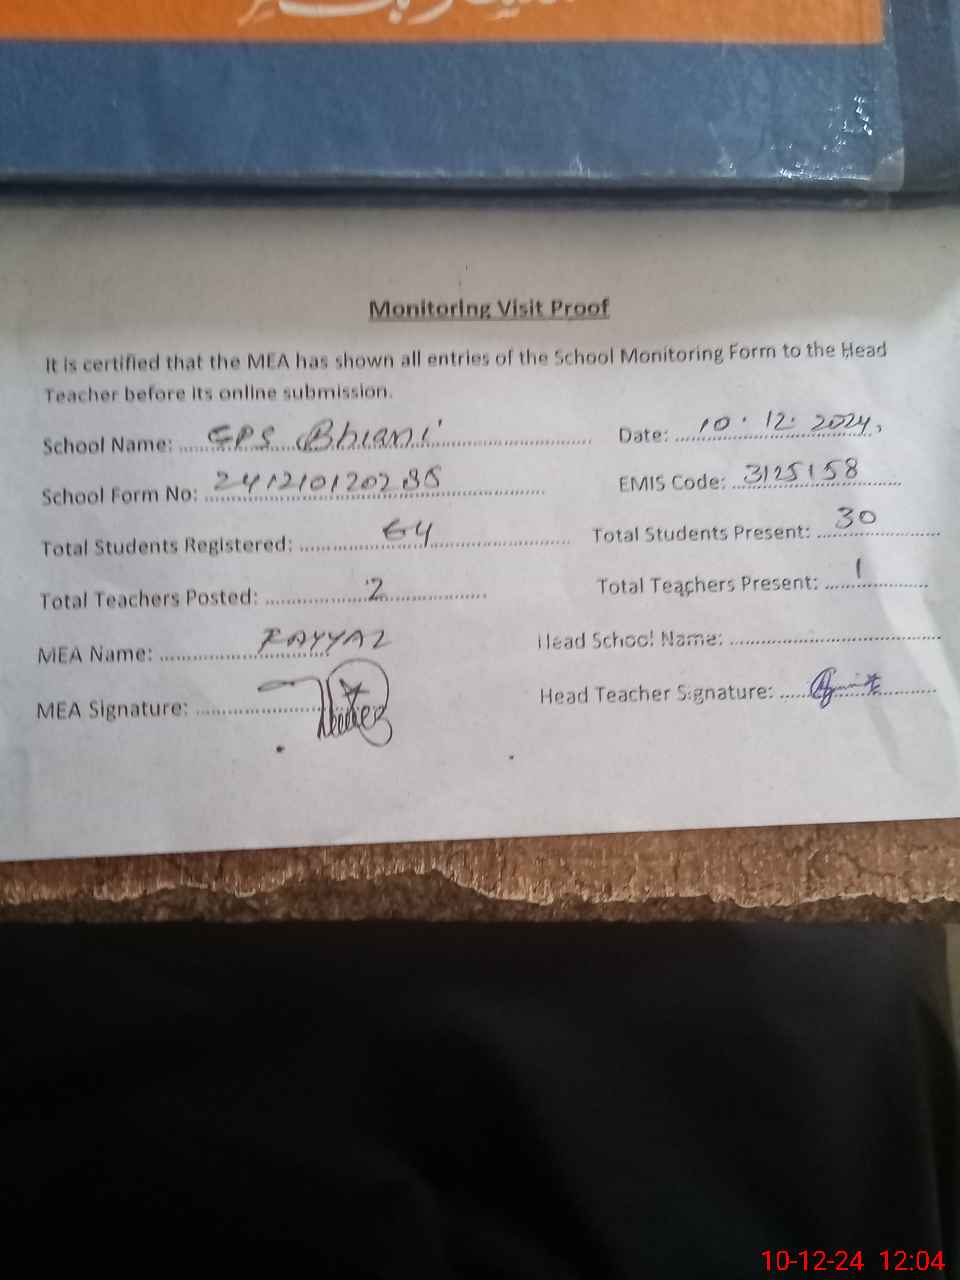 Monitoring Visit Proof
It is certified that the MEA has shown all entries of the School Monitoring Form to the Head
Teacher before its online submission.
School Name: GPS Bhiani Date: 10.12.2024,
School Form No: 24121012028 EMIS Code: 3125158
Total Students Registered: 64 Total Students Present: 30
Total Teachers Posted: 2 Total Teachers Present: 1
MEA Name: FAYYAZ Head School Name:
MEA Signature: Head Teacher Signature:
10-12-24 12:04